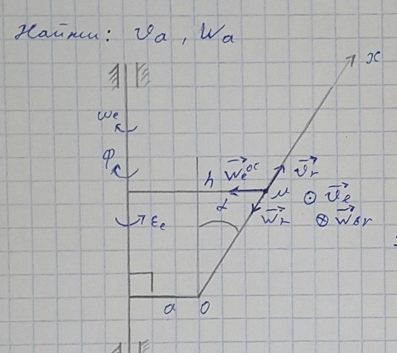 Найти: 𝑣a , Wa
x
ωe
φ
h
W⃗e^oc
v⃗r
M
v⃗e
α
W⃗r
W⃗вr
εe
a
O